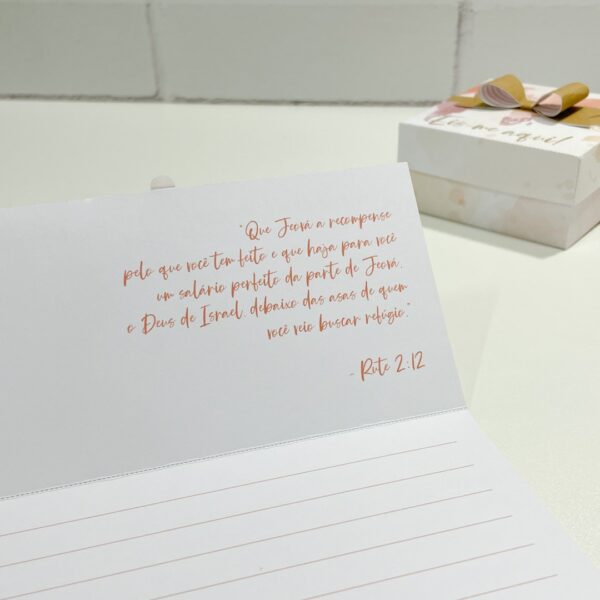 "Que Jeová a recompense
pelo que você tem feito e que haja para você
um salário perfeito da parte de Jeová,
o Deus de Israel, debaixo das asas de quem
você veio buscar refúgio."
- Rute 2:12
Eis-me aqui!